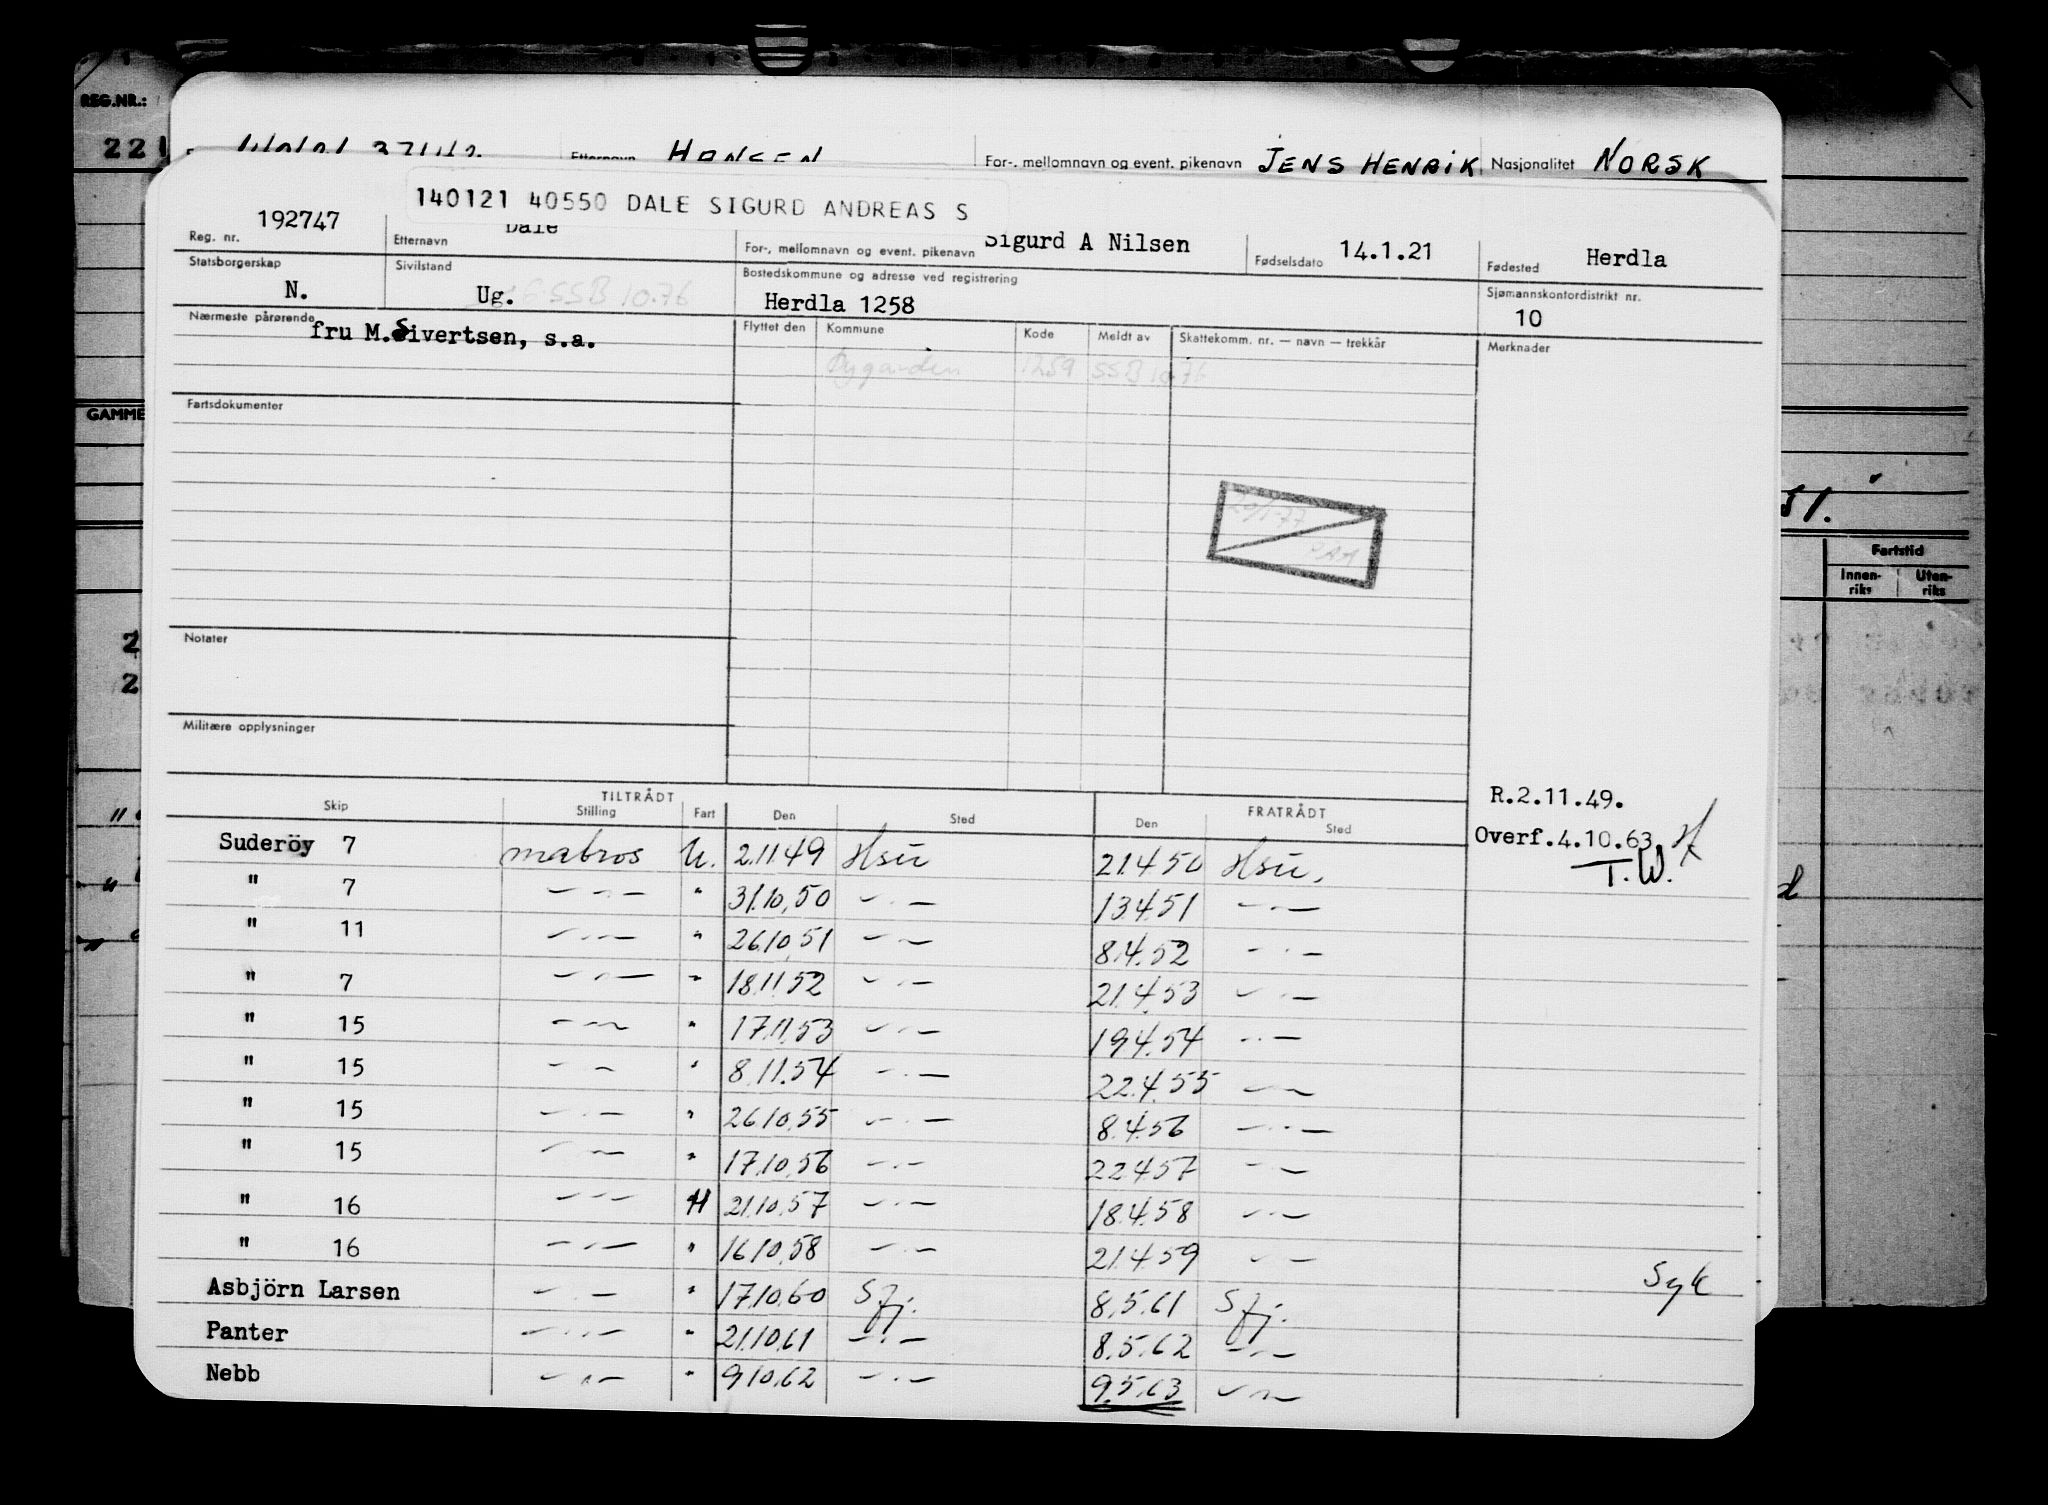 REG.NR.:
221
Etternavn HANSEN For-, mellomnavn og event. pikenavn JENS HENRIK Nasjonalitet NORSK
140121 40550 DALE SIGURD ANDREAS S
Reg. nr. 192747 Etternavn Dale For-, mellomnavn og event. pikenavn Sigurd A Nilsen Fødselsdato 14.1.21 Fødested Herdla
Statsborgerskap N. Sivilstand Ug. SSB 10.76 Bostedskommune og adresse ved registrering Herdla 1258 Sjømannskontordistrikt nr. 10
Nærmeste pårørende fru M.Sivertsen, s.a. Flyttet den Kommune Kode Meldt av Skattekomm. nr. — navn — trekkår Merknader
Øygarden 1259 SSB 10.76
GAMME
Fartsdokumenter
51.
Fartstid
Innen-riks Uten-riks
Notater
2
2
Militære opplysninger
R.2.11.49.
Overf.4.10.63 H
T.W.
TILTRÅDT FRATRÅDT
Skip Stilling Fart Den Sted Den Sted
Suderöy 7 matros U. 2.11.49 Hsü 21.4.50 Hsü.
" 7 —"— " 31.10.50 —"— 13.4.51 —"—
" 11 —"— " 26.10.51 —"— 8.4.52 —"—
" 7 —"— " 18.11.52 —"— 21.4.53 —"—
" 15 —"— " 17.11.53 —"— 19.4.54 —"—
" 15 —"— " 8.11.54 —"— 22.4.55 —"—
" 15 —"— " 26.10.55 —"— 8.4.56 —"—
" 15 —"— " 17.10.56 —"— 22.4.57 —"—
" 16 —"— H 21.10.57 —"— 18.4.58 —"—
" 16 —"— " 16.10.58 —"— 21.4.59 —"— Syk
Asbjörn Larsen —"— " 17.10.60 Sfj. 8.5.61 Sfj.
Panter —"— " 21.10.61 —"— 8.5.62 —"—
Nebb —"— " 9.10.62 —"— 9.5.63 —"—